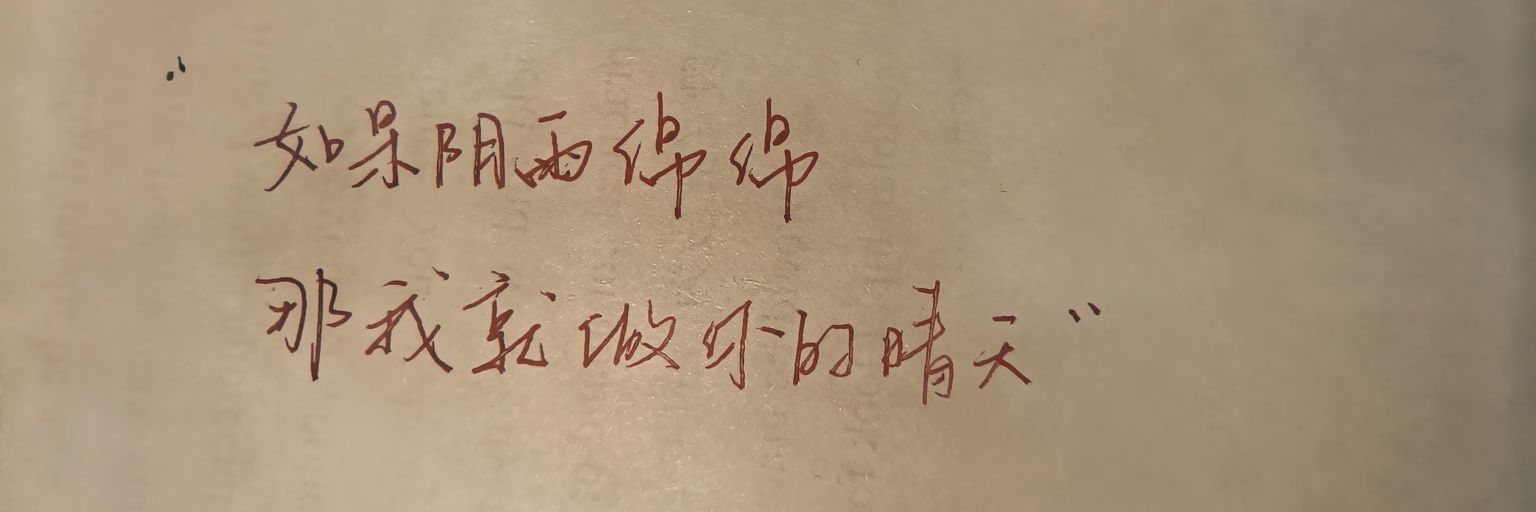 “如果阴雨绵绵
那我就做你的晴天”